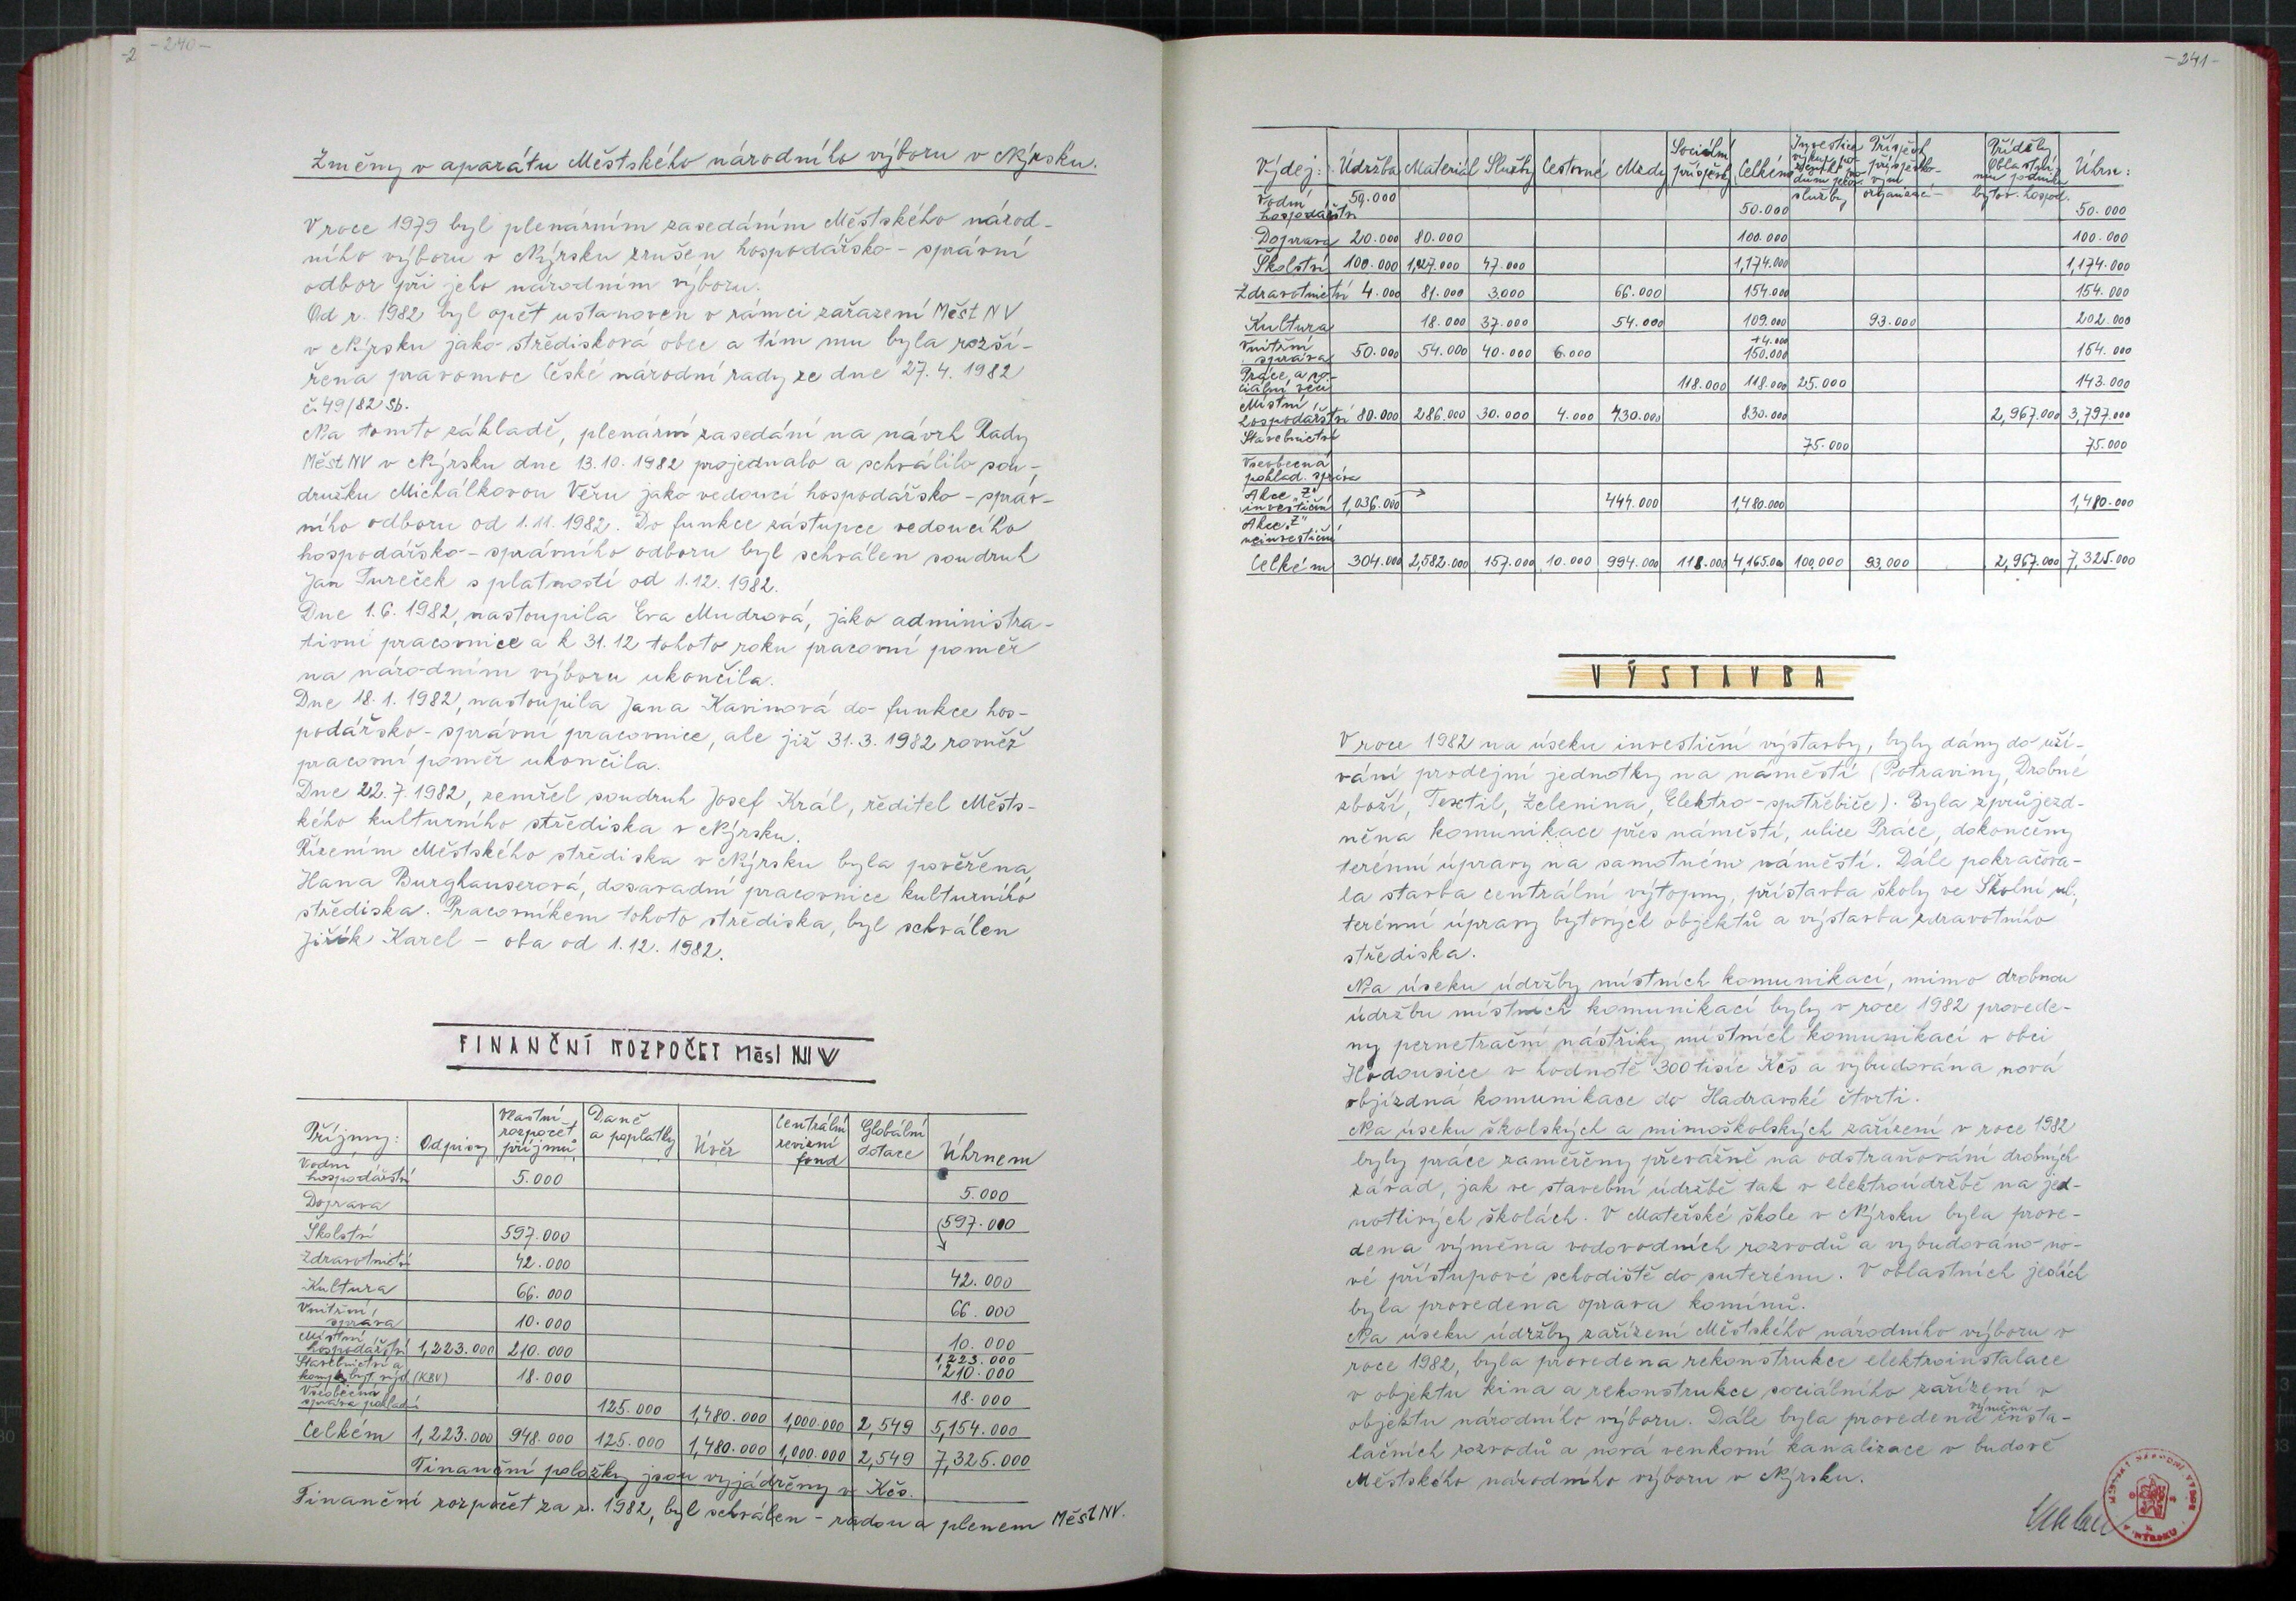 -2
- 240 -
Změny v aparátu Městského národního výboru v Nýrsku.
V roce 1979 byl plenárním zasedáním Městského národ-
ního výboru v Nýrsku zrušen hospodářsko - správní
odbor při jeho národním výboru.
Od r. 1982 byl opět ustanoven v rámci zařazení Měst NV
v Nýrsku jako středisková obec a tím mu byla rozší-
řena pravomoc České národní rady ze dne 27. 4. 1982
č. 49/82 Sb.
Na tomto základě, plenární zasedání na návrh Rady
Měst NV v Nýrsku dne 13. 10. 1982 projednalo a schválilo sou-
družku Michálkovou Věru jako vedoucí hospodářsko - správ-
ního odboru od 1. 11. 1982. Do funkce zástupce vedoucího
hospodářsko - správního odboru byl schválen soudruh
Jan Tureček s platností od 1. 12. 1982.
Dne 1. 6. 1982, nastoupila Eva Mudrová, jako administra-
tivní pracovnice a k 31. 12 tohoto roku pracovní poměr
na národním výboru ukončila.
Dne 18. 1. 1982, nastoupila Jana Kavinová do funkce hos-
podářsko - správní pracovnice, ale již 31. 3. 1982 rovněž
pracovní poměr ukončila.
Dne 22. 7. 1982, zemřel soudruh Josef Král, ředitel Městs-
kého kulturního střediska v Nýrsku.
Řízením Městského střediska v Nýrsku byla pověřena
Hana Burghauserová, dosavadní pracovnice kulturního
střediska. Pracovníkem tohoto střediska, byl schválen
Jiřík Karel - oba od 1. 12. 1982.
FINANČNÍ ROZPOČET Měst NV
Příjmy: Odpisy Vlastní rozpočet příjmů Daně a poplatky Úvěr Centrální revizní fond Globální dotace Úhrnem
Vodní hospodářství 5.000 5.000
Doprava
Školství 597.000 597.000
Zdravotnictví 42.000 42.000
Kultura 66.000 66.000
Vnitřní správa 10.000 10.000
Místní hospodářství 1,223.000 210.000 1,223.000 210.000
Stavebnictví a byt. (KBV) 18.000 18.000
Všeobecná správa pokladní 125.000 1,480.000 1,000.000 2,549 5,154.000
Celkém 1,223.000 948.000 125.000 1,480.000 1,000.000 2,549 7,325.000
Finanční položky jsou vyjádřeny v Kčs.
Finanční rozpočet za r. 1982, byl schválen - radou a plenem Měst NV.
- 241 -
Výdej: Údržba Materiál Služby Cestovné Mzdy Sociální příspěvky Celkém Investice služby Příspěvk příspěvko-vým organizací Příděly Oblastní-mu podniku bytov. hospod. Úhrn:
Vodní hospodářství 50.000 50.000 50.000
Doprava 20.000 80.000 100.000 100.000
Školství 100.000 1,027.000 47.000 1,174.000 1,174.000
Zdravotnictví 4.000 81.000 3.000 66.000 154.000 154.000
Kultura 18.000 37.000 54.000 109.000 93.000 202.000
Vnitřní správa 50.000 54.000 40.000 6.000 +4.000 150.000 154.000
Práce, a so-ciální věci 118.000 118.000 25.000 143.000
Místní hospodářství 80.000 286.000 30.000 4.000 430.000 830.000 2,967.000 3,797.000
Stavebnictví 75.000 75.000
Vseobecná poklad. správa
Akce „Z" investiční 1,036.000 444.000 1,480.000 1,480.000
Akce „Z" neinvestiční
Celkém 304.000 2,582.000 157.000 10.000 994.000 118.000 4,165.000 100.000 93.000 2,967.000 7,325.000
VÝSTAVBA
V roce 1982 na úseku investiční výstavby, byly dány do uží-
vání prodejní jednotky na náměstí (Potraviny, Drobné
zboží, Textil, Zelenina, Elektro - spotřebiče). Byla zprůjezd-
něna komunikace přes náměstí, ulice Práce, dokončeny
terénní úpravy na samotném náměstí. Dále pokračova-
la stavba centrální výtopny, přístavba školy ve Školní ul.,
terénní úpravy bytových objektů a výstavba zdravotního
střediska.
Na úseku údržby místních komunikací, mimo drobnou
údržbu místních komunikací byly v roce 1982 provede-
ny pernetrační nástřiky místních komunikací v obci
Hodousice v hodnotě 300 tisíc Kčs a vybudována nová
objízdná komunikace do Hadravské čtvrti.
Na úseku školských a mimoškolských zařízení v roce 1982
byly práce zaměřeny převážně na odstraňování drobných
závad, jak ve stavební údržbě tak v elektroúdržbě na jed-
notlivých školách. V Mateřské škole v Nýrsku byla prove-
dena výměna vodovodních rozvodů a vybudováno no-
vé přístupové schodiště do suterénu. V oblastních jeslích
byla provedena oprava komínů.
Na úseku údržby zařízení Městského národního výboru v
roce 1982, byla provedena rekonstrukce elektroinstalace
v objektu kina a rekonstrukce sociálního zařízení v
objektu národního výboru. Dále byla provedena výměna insta-
lačních rozvodů a nová venkovní kanalizace v budově
Městského národního výboru v Nýrsku.
MĚSTSKÝ NÁRODNÍ VÝBOR V NÝRSKU